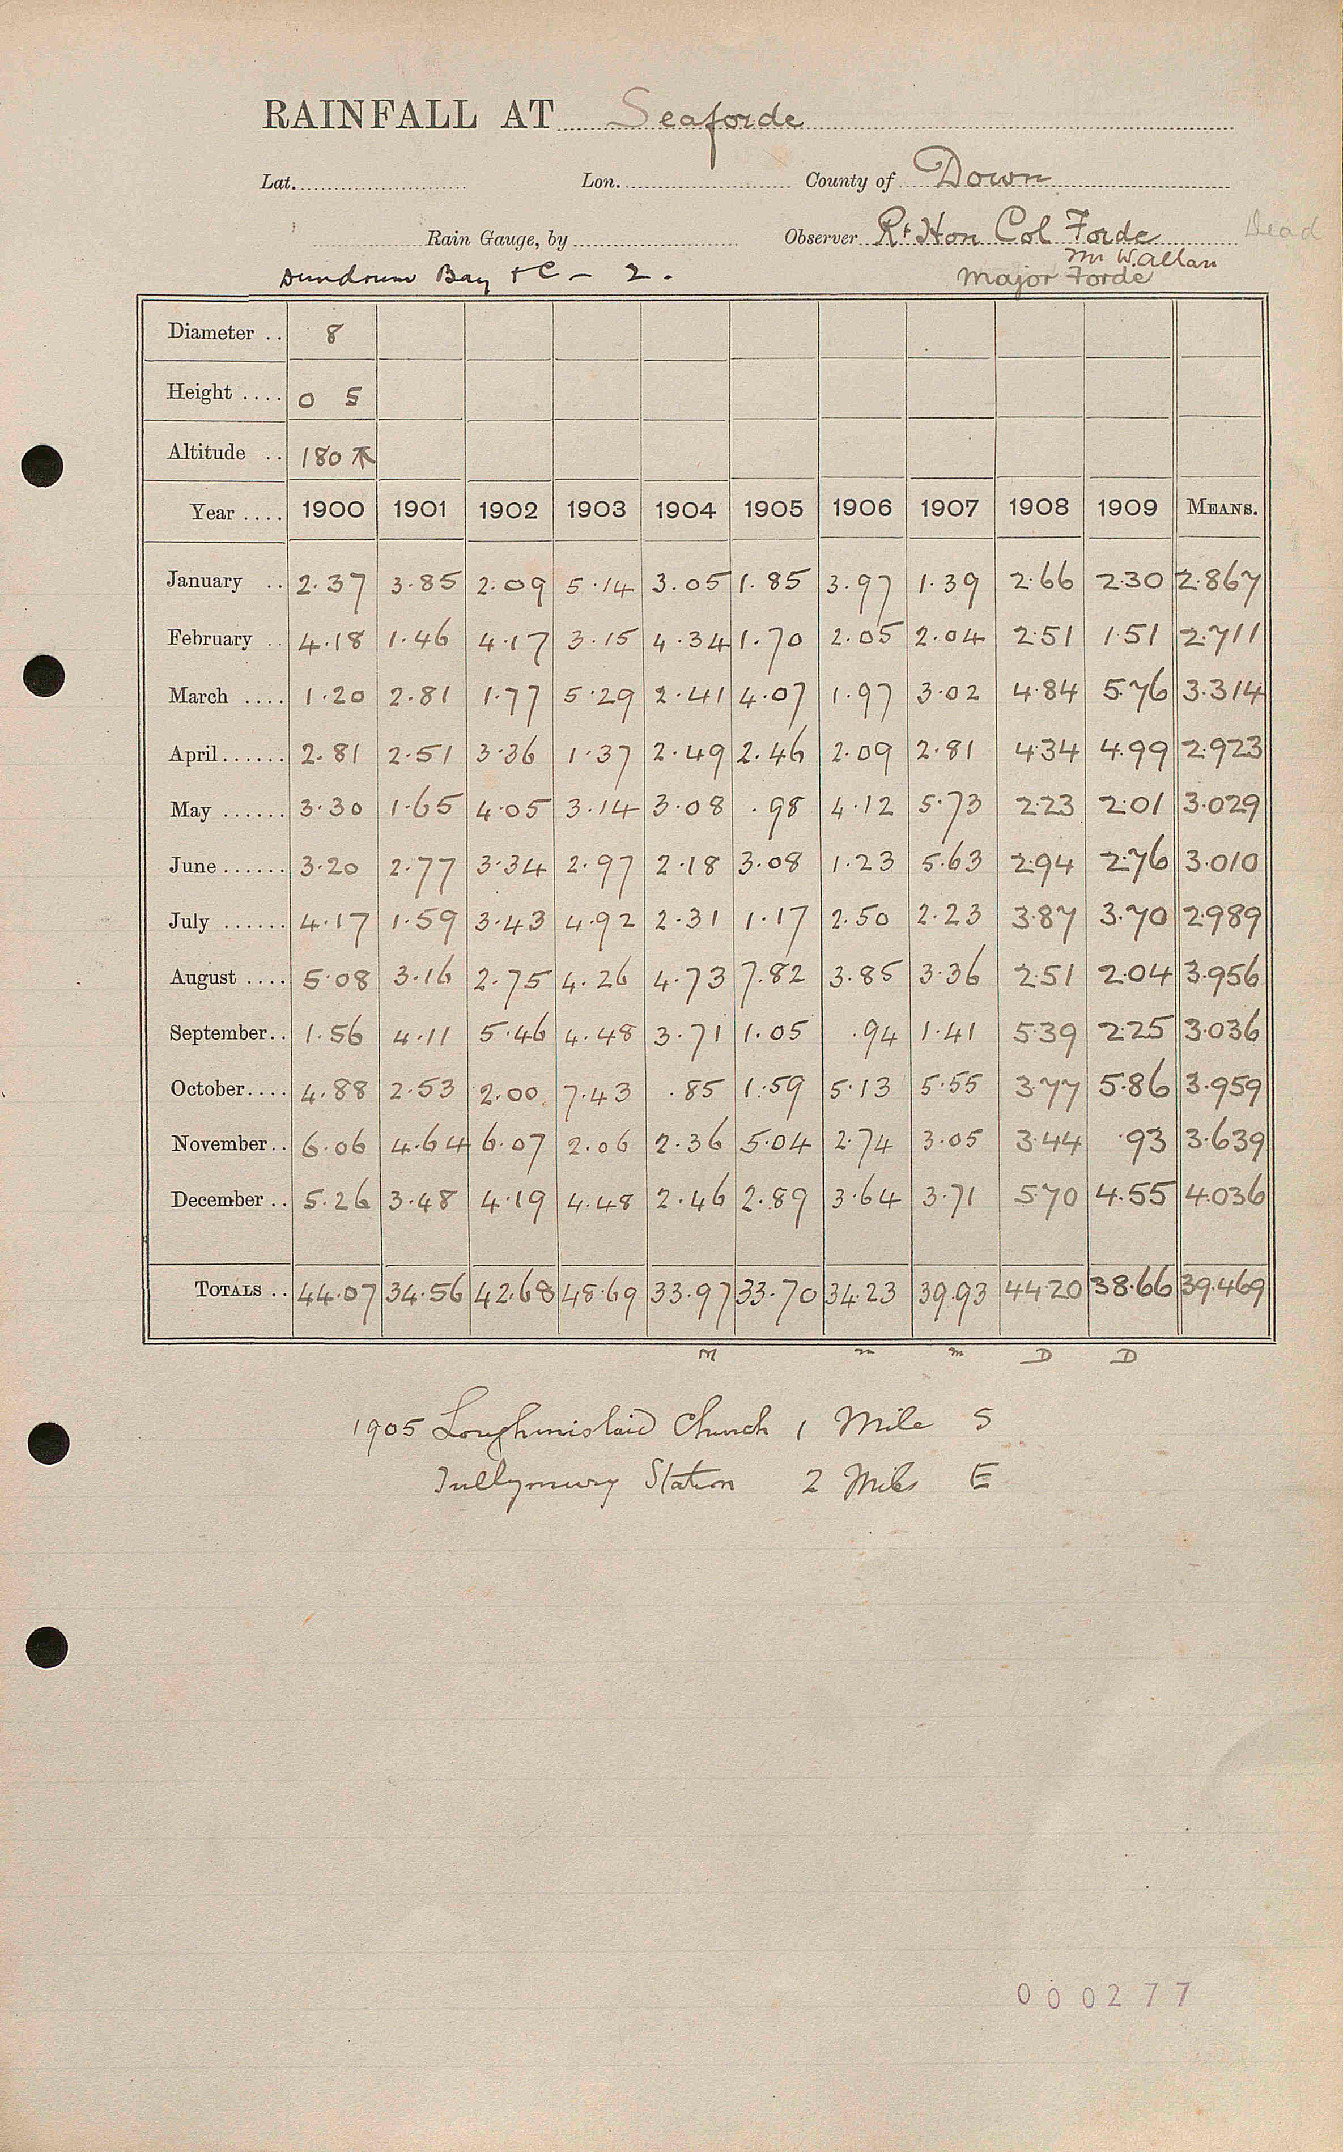 RAINFALL AT Seaforde
Lat. Lon. County of Down
Rain Gauge, by Observer Rt Hon Col Forde Dead
Mr W. Allan
Dundrum Bay &C - 2. Major Forde
Diameter .. 8
Height .... 0 5
Altitude .. 180
Year .... 1900 1901 1902 1903 1904 1905 1906 1907 1908 1909 MEANS.
January .. 2.37 3.85 2.09 5.14 3.05 1.85 3.97 1.39 2.66 2.30 2.867
February .. 4.18 1.46 4.17 3.15 4.34 1.70 2.05 2.04 2.51 1.51 2.711
March .... 1.20 2.81 1.77 5.29 2.41 4.07 1.97 3.02 4.84 5.76 3.314
April...... 2.81 2.51 3.36 1.37 2.49 2.46 2.09 2.81 4.34 4.99 2.923
May ...... 3.30 1.65 4.05 3.14 3.08 .98 4.12 5.73 2.23 2.01 3.029
June...... 3.20 2.77 3.34 2.97 2.18 3.08 1.23 5.63 2.94 2.76 3.010
July ...... 4.17 1.59 3.43 4.92 2.31 1.17 2.50 2.23 3.87 3.70 2.989
August .... 5.08 3.16 2.75 4.26 4.73 7.82 3.85 3.36 2.51 2.04 3.956
September.. 1.56 4.11 5.46 4.48 3.71 1.05 .94 1.41 5.39 2.25 3.036
October.... 4.88 2.53 2.00 7.43 .85 1.59 5.13 5.55 3.77 5.86 3.959
November.. 6.06 4.64 6.07 2.06 2.36 5.04 2.74 3.05 3.44 .93 3.639
December .. 5.26 3.48 4.19 4.48 2.46 2.89 3.64 3.71 5.70 4.55 4.036
TOTALS .. 44.07 34.56 42.68 48.69 33.97 33.70 34.23 39.93 44.20 38.66 39.469
M m m D D
1905 Loughinislaid Church 1 Mile S
Tullymurry Station 2 Miles E
000277